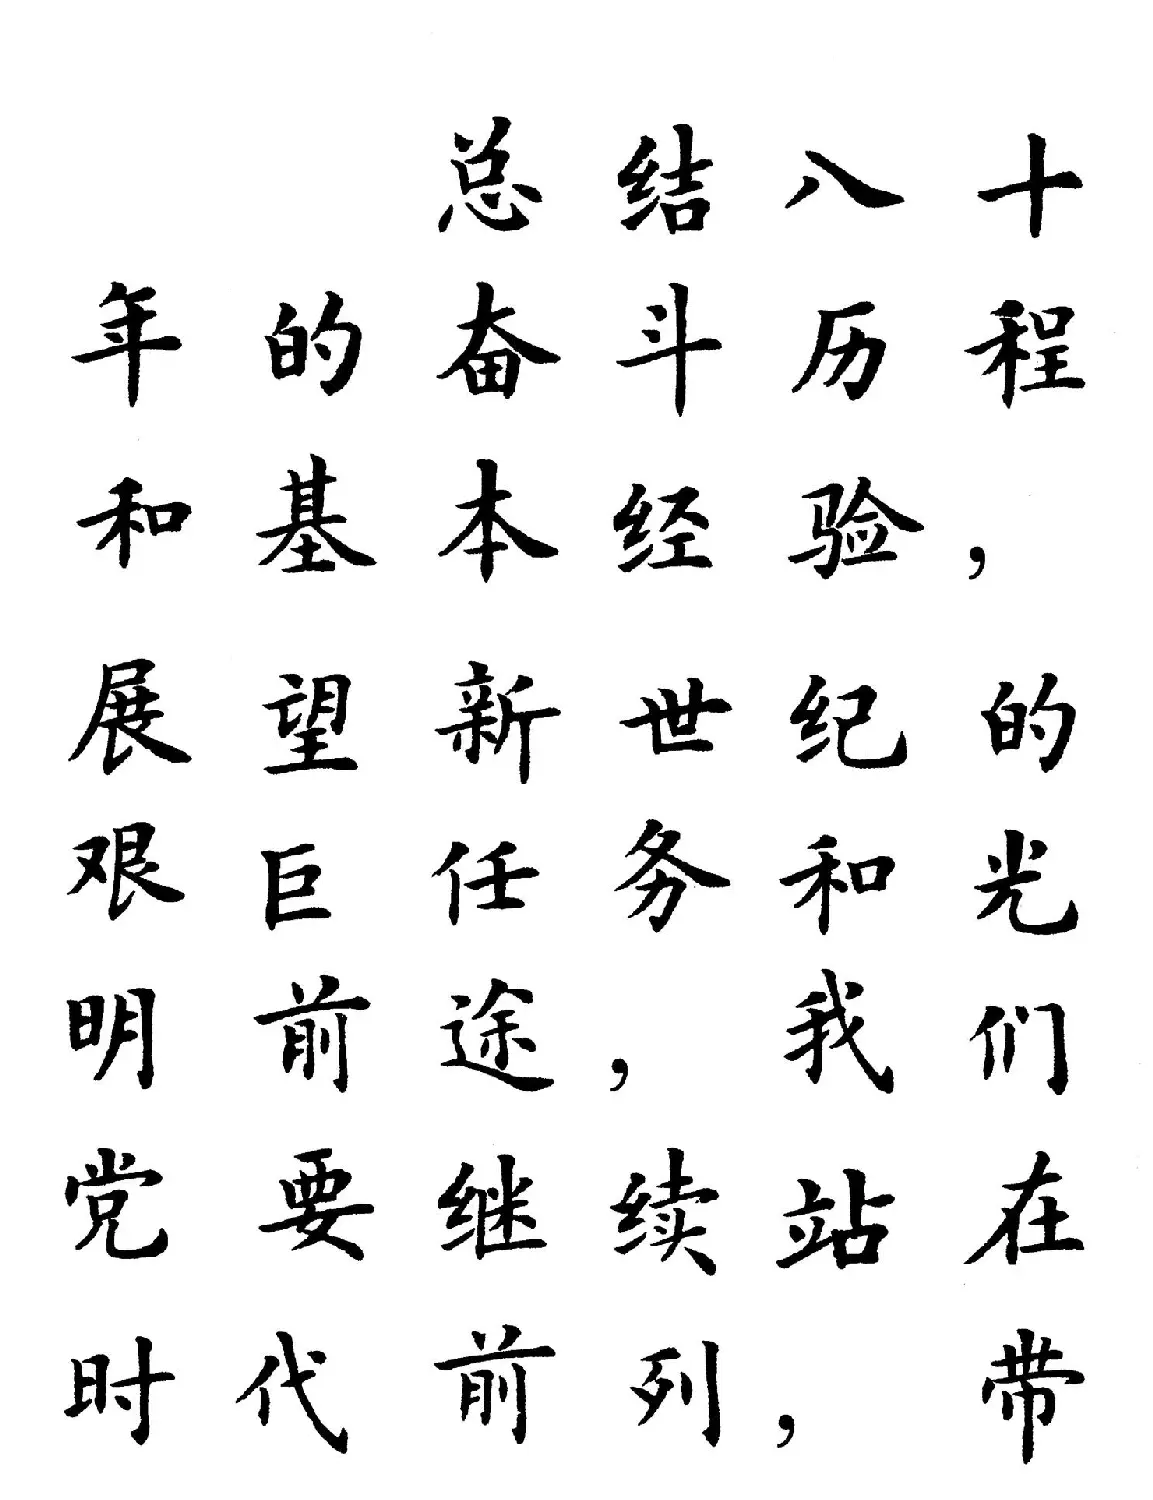 总结八十
年的奋斗历程
和基本经验，
展望新世纪的
艰巨任务和光
明前途，我们
党要继续站在
时代前列，带